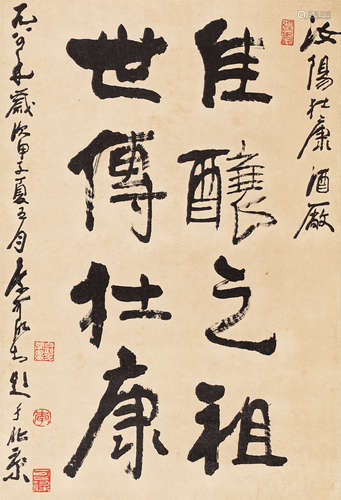 汝陽杜康酒廠
佳釀之祖
世傳杜康
一九八四年歲次甲子夏五月李可染書題于北京